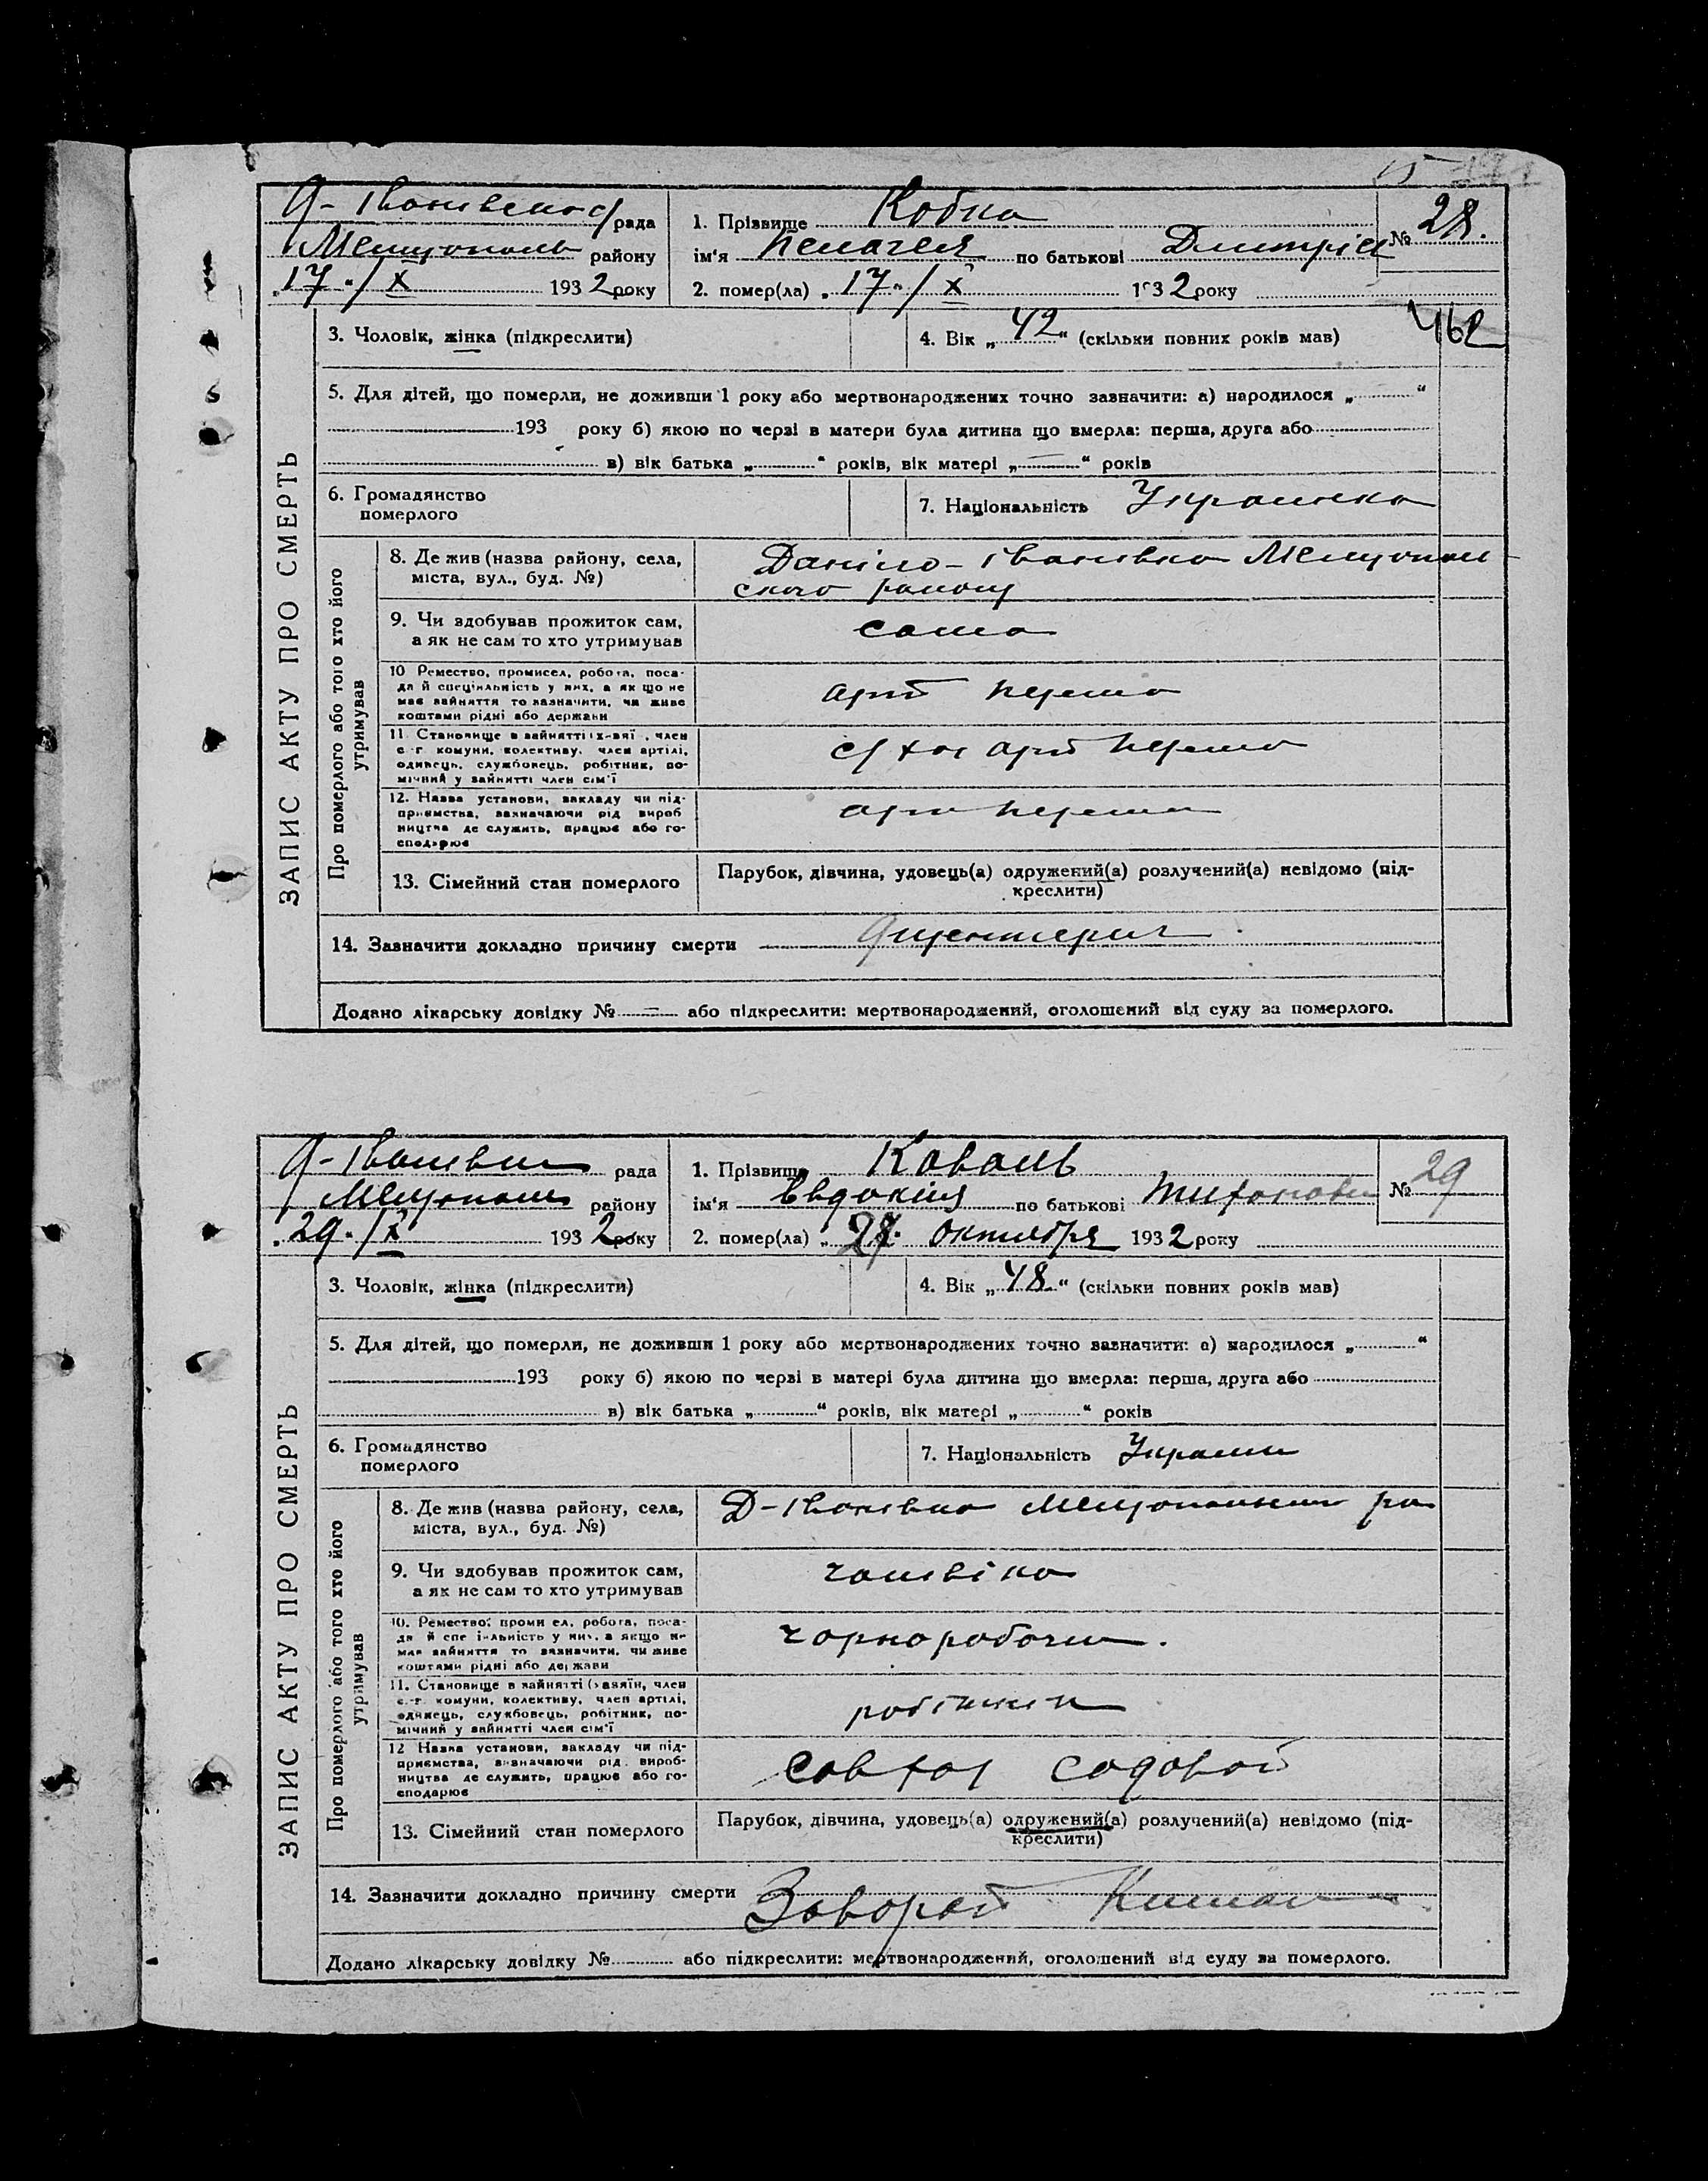 Д-Іванівська с/рада
Меліτοполь району
17/X 1932 року
1. Прізвище Кобка
ім'я Пелагея по батькові Дмитрів
№ 28.
2. помер(ла) „17"/X 1932 року
3. Чоловік, жінка (підкреслити)
4. Вік „42" (скільки повних років мав)
462
5. Для дітей, що померли, не доживши 1 року або мертвонароджених точно зазначити: а) народилося „ "
193 року б) якою по черзі в матери була дитина що вмерла: перша, друга або
в) вік батька „ " років, вік матері „ " років
6. Громадянство
померлого
7. Національність Украинка
ЗАПИС АКТУ ПРО СМЕРТЬ
Про померлого або того хто його
утримував
8. Де жив (назва району, села,
міста, вул., буд. №)
Даніло-Іванівка Меліτοполь-
ского району
9. Чи здобував прожиток сам,
а як не сам то хто утримував
сама
10 Ремество, промисел, робота, поса-
да й спеціяльність у них, а як що не
має зайняття то зазначити, чи живе
коштами рідні або держави
арт
11 Становище в зайнятті (х-зяї, член
с-г комуни, колективу, член артілі,
одинець, службовець, робітник, по-
мічний у зайнятті член сім'ї
с/хоз арт
12. Назва установи, закладу чи під-
приємства, зазначаючи рід вироб
ництва де служить, працює або го-
сподарює
арт
13. Сімейний стан померлого
Парубок, дівчина, удовець(а) одружений(а) розлучений(а) невідомо (під-
креслити)
14. Зазначити докладно причину смерти Дизентерия
Додано лікарську довідку № — або підкреслити: мертвонароджений, оголошений від суду за померлого.
Д-Іванівка рада
району
„29"/X 1932 року
1. Прізвище Коваль
ім'я Євдокія по батькові Тихонови
№ 29
2. помер(ла) „ " октября 1932 року
3. Чоловік, жінка (підкреслити)
4. Вік „48" (скільки повних років мав)
5. Для дітей, що померли, не доживши 1 року або мертвонароджених точно зазначити: а) народилося „ "
193 року б) якою по черзі в матері була дитина що вмерла: перша, друга або
в) вік батька „ " років, вік матері „ " років
6. Громадянство
померлого
7. Національність Украин
ЗАПИС АКТУ ПРО СМЕРТЬ
Про померлого або того хто його
утримував
8. Де жив (назва району, села,
міста, вул., буд. №)
Д-Іванівка ра
9. Чи здобував прожиток сам,
а як не сам то хто утримував
чоловіка
10. Ремество, проми ел, робота, поса-
да й спе і льність у них, а якщо не
має зайняття то зазначити, чи живе
коштами рідні або держави
чорноробочи.
11. Становище в зайнятті (хазяїн, член
с.-г. комуни, колективу, член артілі,
одинець, службовець, робітник, по-
мічний у зайнятті член сім'ї
робітник
12 Назва установи, закладу чи під-
приємства, зазначаючи рід вироб-
ництва де служить, працює або го-
сподарює
Совхоз Садовой
13. Сімейний стан померлого
Парубок, дівчина, удовець(а) одружений(а) розлучений(а) невідомо (під-
креслити)
14. Зазначити докладно причину смерти Заворот Кишок
Додано лікарську довідку № або підкреслити: мертвонароджений, оголошений від суду за померлого.